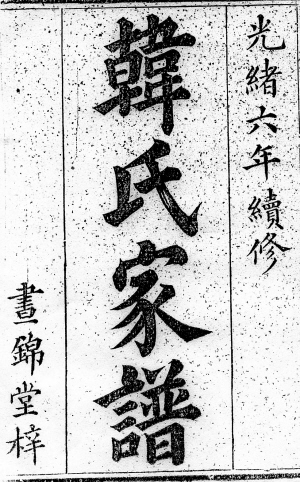 光緒六年續修
韓氏家譜
晝錦堂梓